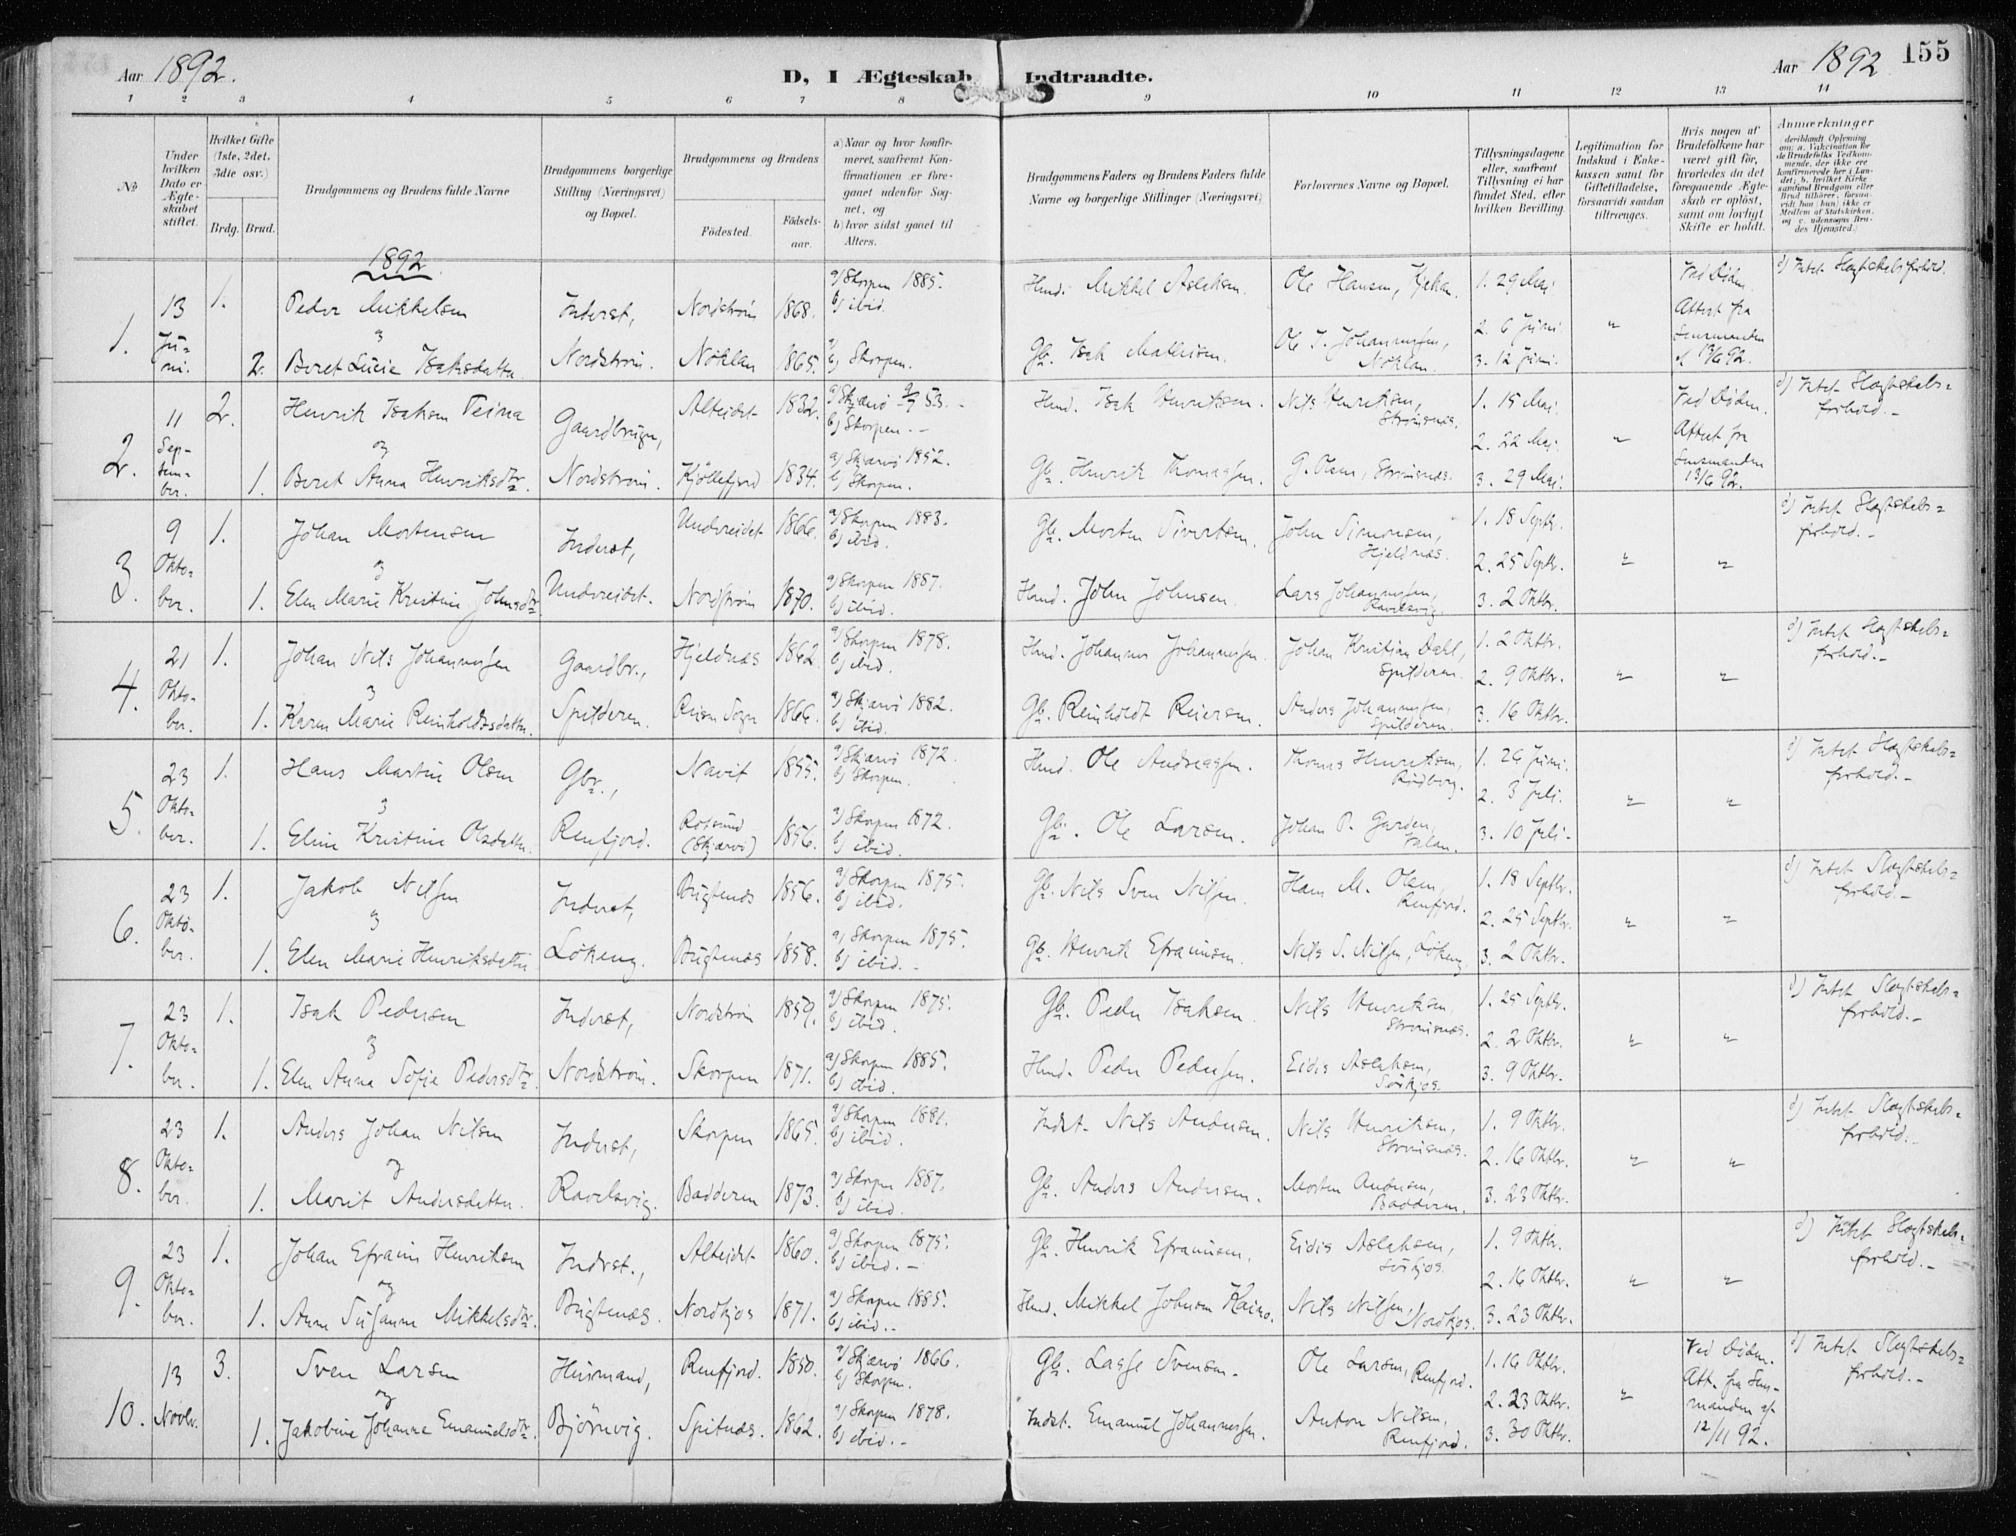 Aar 1892.
D, I Ægteskab Indtraadte.
Aar 1892
155
1 2 3 4 5 6 7 8 9 10 11 12 13 14
№
Under hvilken Dato er Ægte-skabet stiftet.
Hvilket Gifte (1ste, 2det, 3die osv.)
Brdg. Brud.
Brudgommens og Brudens fulde Navne
Brudgommens borgerlige Stilling (Næringsvei) og Bopæl.
Brudgommens og Brudens
Fødested.
Fødsels-aar.
a) Naar og hvor konfir-meret, saafremt Kon-firmationen er fore-gaaet udenfor Sog-net, og
b) hvor sidst gaaet til Alters.
Brudgommens Faders og Brudens Faders fulde Navne og borgerlige Stillinger (Næringsvei)
Forlovernes Navne og Bopæl.
Tillysningsdagene eller, saafremt Tillysning ei har fundet Sted, efter hvilken Bevilling.
Legitimation for Indskud i Enke-kassen samt for Giftetilladelse, forsaavidt saadan tiltrænges.
Hvis nogen af Brudefolkene har været gift før, hvorledes da det foregaaende Ægte-skab er opløst, samt om lovligt Skifte er holdt.
Anmærkninger
(deriblandt Oplysning om: a. Vakcination for de Brudefolks Vedkom-mende, der ikke ere konfirmerede her i Lan-det; b. hvilket Kirke-samfund Brudgom eller Brud tilhører, forsaa-vidt han (hun) ikke er Medlem af Statskirken, og c. udensogns Bru-des Hjemsted.)
1892
1. 13 Ju-ni. 1. Peder Mikkelsen Inderst, Nordstrøm 1868. a) Skorpen 1885. b) ibid. Hmd. Mikkel Aslaksen. Ole Hansen, 1. 29 Mai Ved Døden. d) Intet Slægtskabsforhold.
og 2. 6 Juni. " Attest fra Lensmanden
2. Beret Lucie Isaksdatter Nordstrøm. Nøklan 1865. b) Skorpen. Gb. Isak Mathisen. Ole J. Johannessen, Nøklan. 3. 12 Juni. af 13/6 92.
2. 11 Sep-tem-ber. 2. Henrik Isaksen Teina Gaardbruger, Alteidet 1832. a) Skjærvø 53. b) Skorpen. Hmd. Isak Henriksen. Nils Henriksen, Strømsnæs. 1. 15 Mai. Ved Døden. d) Intet Slægtskabs=forhold.
og 2. 22 Mai. " Attest fra Lensmanden
1. Beret Anna Henriksdtr Nordstrøm. Kjöllefjord 1834. a) Skjærvø 1852. b) Skorpen. Gb. Henrik Thomassen. G. Olsen, Strømsnæs. 3. 29 Mai. 13/6 92.
3. 9 Okto-ber. 1. Johan Mortensen Inderst, Undereidet 1866. a) Skorpen 1883. b) ibid. Gb. Morten Sivertsen. John Simonsen, Hjeldnæs. 1. 18 Septbr. d) Intet Slægtskabs=forhold.
og 2. 25 Septbr. " "
1. Elen Marie Kristine Johnsdtr Undereidet. Nordstrøm 1870. a) Skorpen 1887. b) ibid. Hmd. John Johnsen. Lars Johannessen, Ravelsvig. 3. 2 Oktbr.
4. 21 Okto-ber. 1. Johan Nils Johannessen Gaardbr., Hjeldnæs 1862. a) Skorpen 1878. b) ibid. Hmd. Johannes Johannessen. Johan Kristian Dahl, Spilderen. 1. 2 Oktbr. d) Intet Slægtskabs=forhold.
og 2. 9 Oktbr. " "
1. Karen Marie Reinholdtsdatter Spilderen. Reisen Sogn 1866. a) Skjærvø 1882. b) ibid. Gb. Reinholdt Reiersen. Anders Johannessen, Spilderen. 3. 16 Oktbr.
5. 23 Okto-ber. 1. Hans Martin Olsen Gbr., Navit 1855. a) Skjærvø 1872. b) Skorpen. Hmd. Ole Andreassen. Thomas Henriksen, Rødberg. 1. 26 Juni. d) Intet Slægtskabs=forhold.
og 2. 3 Juli. " "
1. Eline Kristine Olsdatter. Renfjord. Rotsund (Skjærvø) 1856. a) Skorpen 1872. b) ibid. Gb. Ole Larsen. Johan P. Garden, Valan. 3. 10 Juli.
6. 23 Okto-ber. 1. Jakob Nilsen Inderst, Bugtenæs 1856. a) Skorpen 1875. b) ibid. Gb. Nils Sven Nilsen. Hans M. Olsen, Renfjord. 1. 18 Septbr. d) Intet Slægtskabs=forhold.
og 2. 25 Septbr. " "
1. Elen Marie Henriksdatter Løkeng. Bugtenæs 1858. a) Skorpen 1875. b) ibid. Gb. Henrik Efraimsen. Nils S. Nilsen, Løkeng. 3. 2 Oktbr.
7. 23 Okto-ber. 1. Isak Pedersen Inderst, Nordstrøm 1859. a) Skorpen 1875. b) ibid. Gb. Peder Isaksen. Nils Henriksen, Strømsnæs. 1. 25 Septbr. d) Intet Slægtskabs=forhold.
og 2. 2 Oktbr. " "
1. Elen Anna Sofie Pedersdtr. Nordstrøm. Skorpen 1871. a) Skorpen 1885. b) ibid. Hmd. Peder Pedersen. Eidis Aslaksen, Sørkjos. 3. 9 Oktbr.
8. 23 Okto-ber. 1. Anders Johan Nilsen Inderst, Skorpen 1865. a) Skorpen 1881. b) ibid. Indst. Nils Andersen. Nils Henriksen, Strømsnæs. 1. 9 Oktbr. d) Intet Slægtskabs=forhold.
og 2. 16 Oktbr. " "
1. Marit Andersdatter. Ravelsvig. Badderen 1873. a) Skorpen 1887. b) ibid. Gb. Anders Andersen. Morten Andersen, Badderen. 3. 23 Oktbr.
9. 23 Okto-ber. 1. Johan Efraim Henriksen Inderst., Alteidet 1860. a) Skorpen 1875. b) ibid. Gb. Henrik Efraimsen. Eidis Aslaksen, Sørkjos. 1. 9 Oktbr. d) Intet Slægtskabs=forhold.
og 2. 16 Oktbr. " "
1. Anne Susanne Mikkelsdtr. Bugtenæs. Nordkjos 1871. a) Skorpen 1885. b) ibid. Hmd. Mikkel Johnsen Kaino. Nils Nilsen, Nordkjos. 3. 23 Oktbr.
10. 13 Novbr. 3. Sven Larsen Huusmand, Renfjord. 1850. a) Skjærvø 1866. b) Skorpen. Gb. Lasse Svensen. Ole Larsen, Renfjord. 1. 16 Oktbr. Ved Døden. d) Intet Slægtskabs=forhold.
og 2. 23 Oktbr. " Att. fra Lens-manden af
1. Jakobine Johanna Emanuelsdtr. Bjørnvig. Spitnæs. 1862. a) Skorpen 1878. b) ibid. Indst. Emanuel Johannessen. Anton Nilsen, Renfjord. 3. 30 Oktbr. 12/11 92.